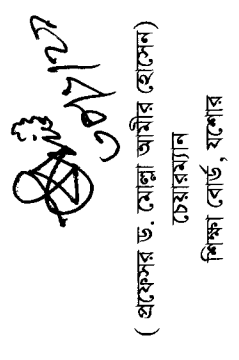 ( প্রফেসর ড. মোল্লা আমীর হোসেন)
চেয়ারম্যান
শিক্ষা বোর্ড, যশোর